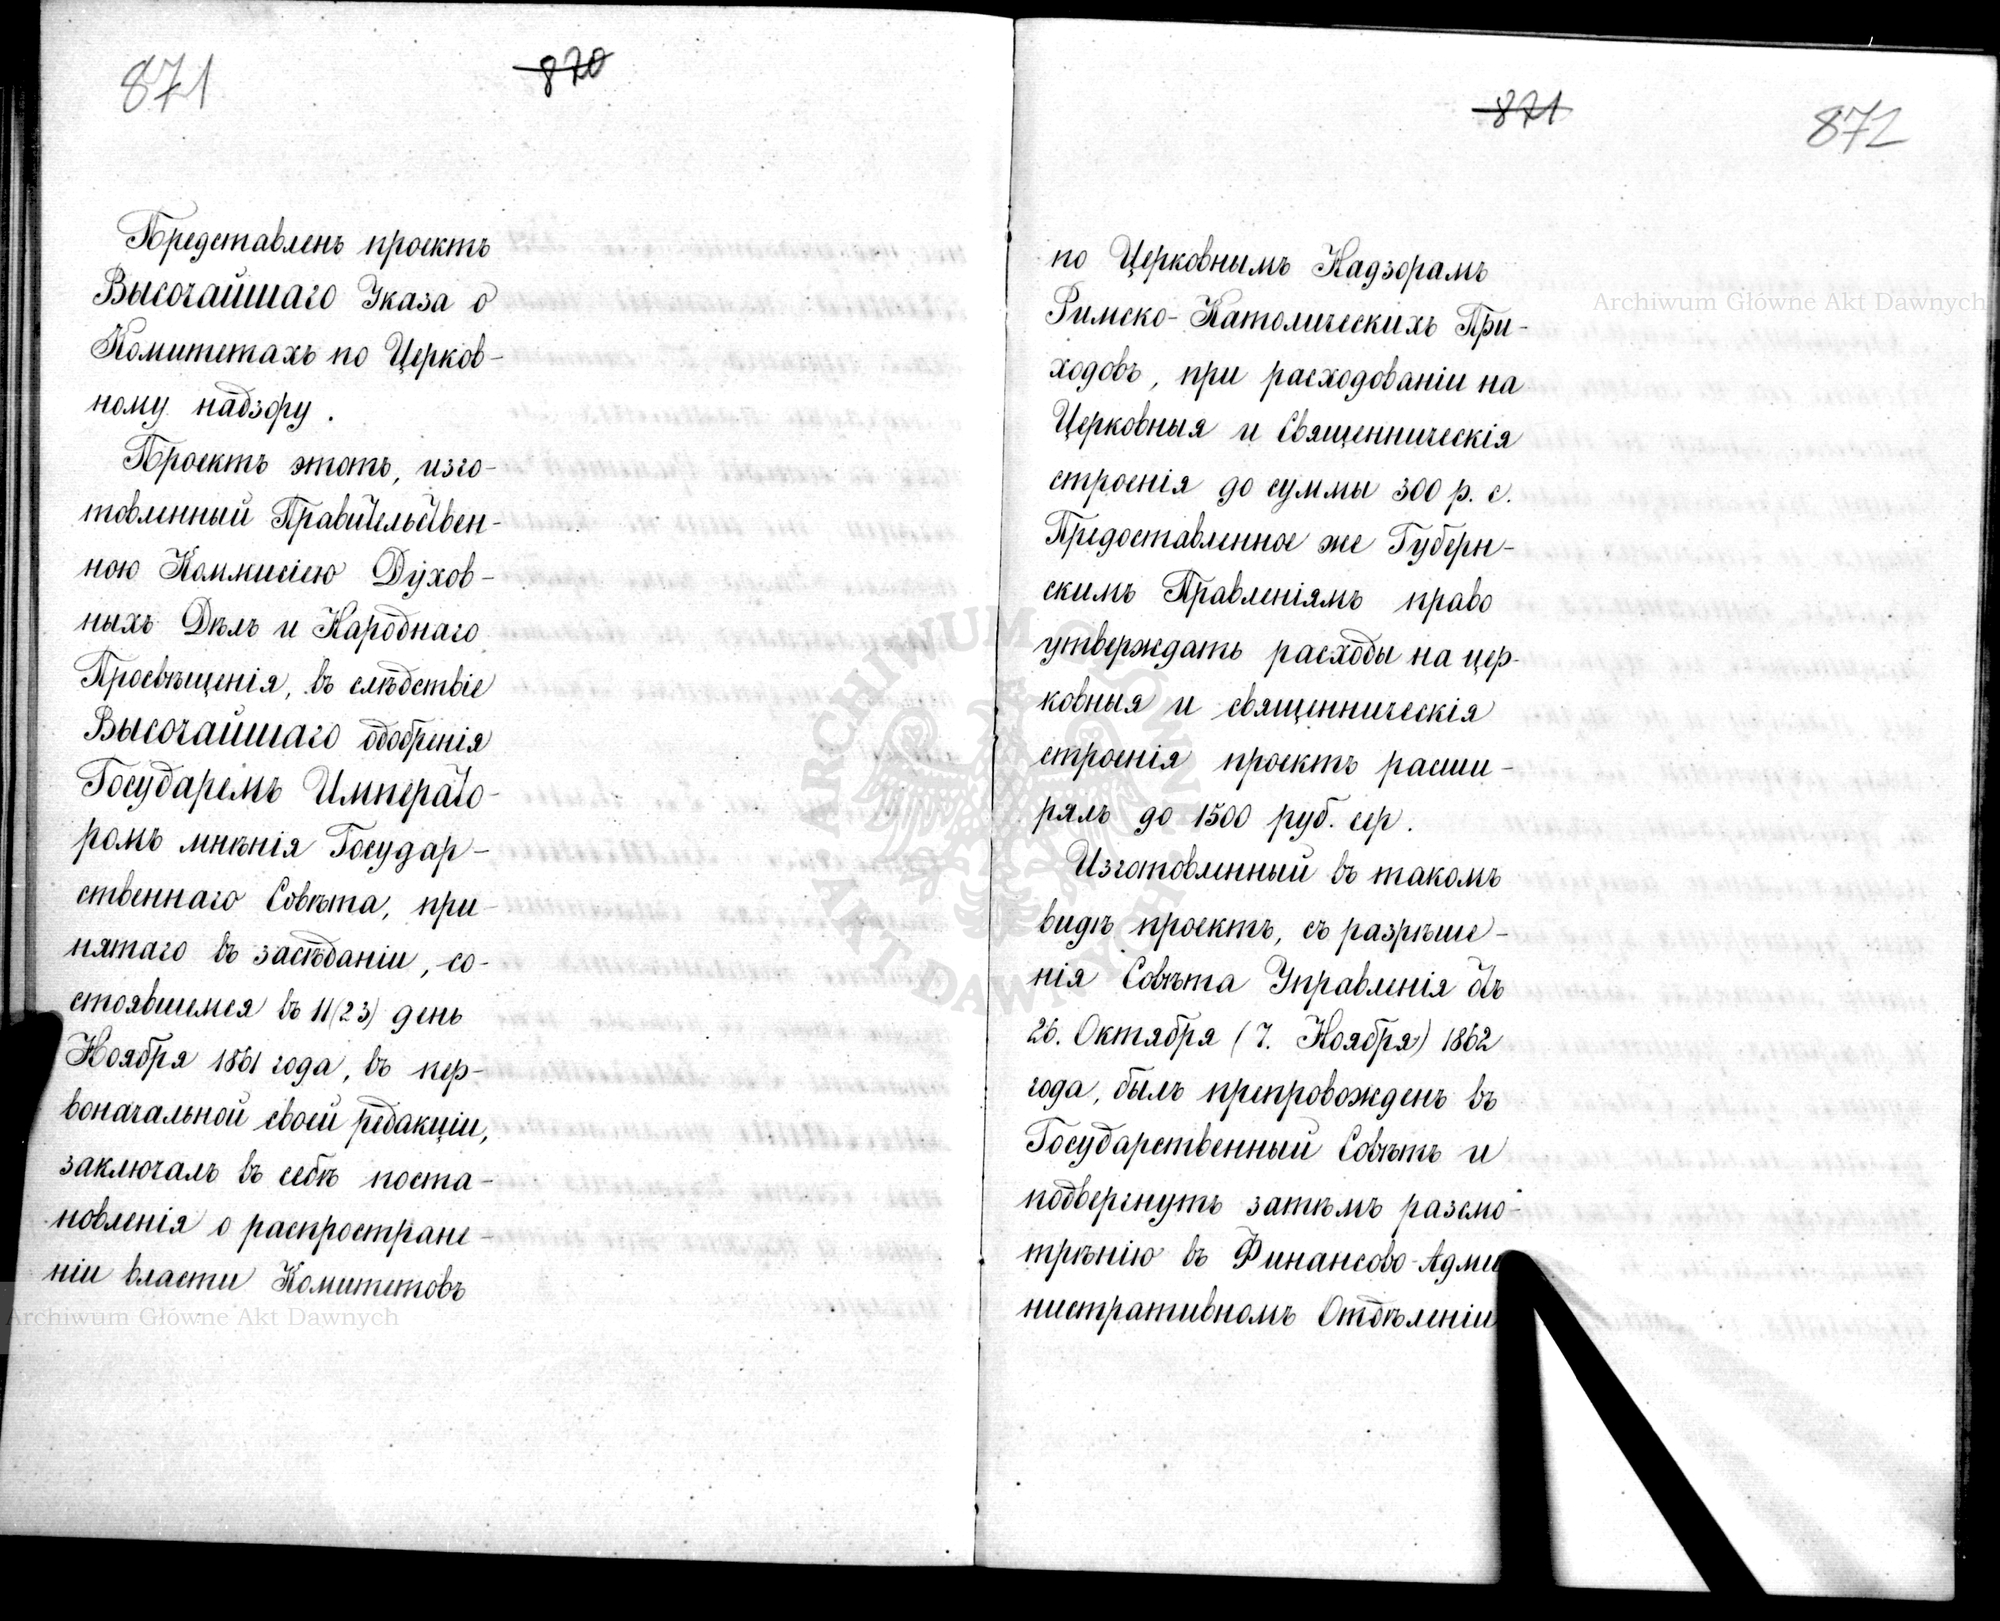 871
870
Представленъ проектъ
Высочайшаго Указа о
Комитетахъ по Церков-
ному надзору.
Проектъ этотъ, изго-
товленный Правительствен-
ною Коммисіею Духов-
ныхъ Дѣлъ и Народнаго
Просвѣщенія, въ слѣдствіе
Высочайшаго одобренія
Государемъ Императо-
ромъ мнѣнія Государ-
ственнаго Совѣта, при-
нятаго въ засѣданіи, со-
стоявшемся въ 11(23) день
Ноября 1861 года, въ пер-
воначальной своей редакціи,
заключалъ въ себѣ поста-
новленія о распростране-
ніи власти Комитетовъ
871
872
по Церковнымъ Надзорамъ
Римско-Католическихъ При-
ходовъ, при расходованіи на
Церковныя и Священническія
строенія до суммы 300 р. с.
Предоставленное же Губерн-
скимъ Правленіямъ право
утверждать расходы на цер-
ковныя и священническія
строенія проектъ расши-
рялъ до 1500 руб. сер.
Изготовленный въ такомъ
видѣ проектъ, съ разрѣше-
нія Совѣта Управленія отъ
26. Октября (7. Ноября) 1862
года, былъ препровожденъ въ
Государственный Совѣтъ и
подвергнутъ затѣмъ разсмо-
трѣнію въ Финансово-Адми
нистративномъ Отдѣленіи
Archiwum Główne Akt Dawnych
Archiwum Główne Akt Dawnych
ARCHIWUM GŁÓWNE AKT DAWNYCH